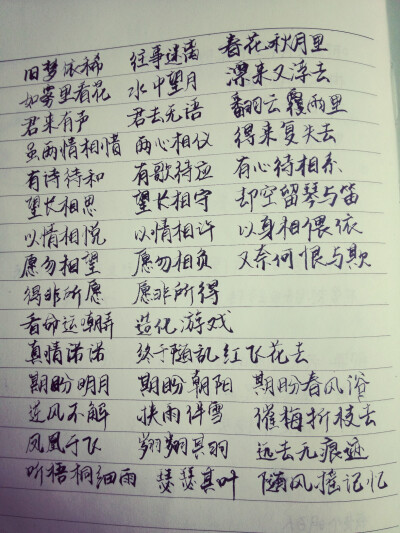 旧梦依稀 往事迷离 春花秋月里
如雾里看花 水中望月 漂来又浮去
君来有声 君去无语 翻云覆雨里
虽两情相惜 两心相仪 得来复失去
有诗待和 有歌待应 有心待相系
望长相思 望长相守 却空留琴与笛
以情相悦 以情相许 以身相偎依
愿勿相望 愿勿相负 又奈何恨与欺
得非所愿 愿非所得
看命运嘲弄 造化游戏
真情诺诺 终于随乱红飞花去
期盼明月 期盼朝阳 期盼春风浴
逆风不解 挟雨伴雪 催梅折枝去
凤凰于飞 翙翙其羽 远去无痕迹
听梧桐细雨 瑟瑟其叶 随风摇记忆